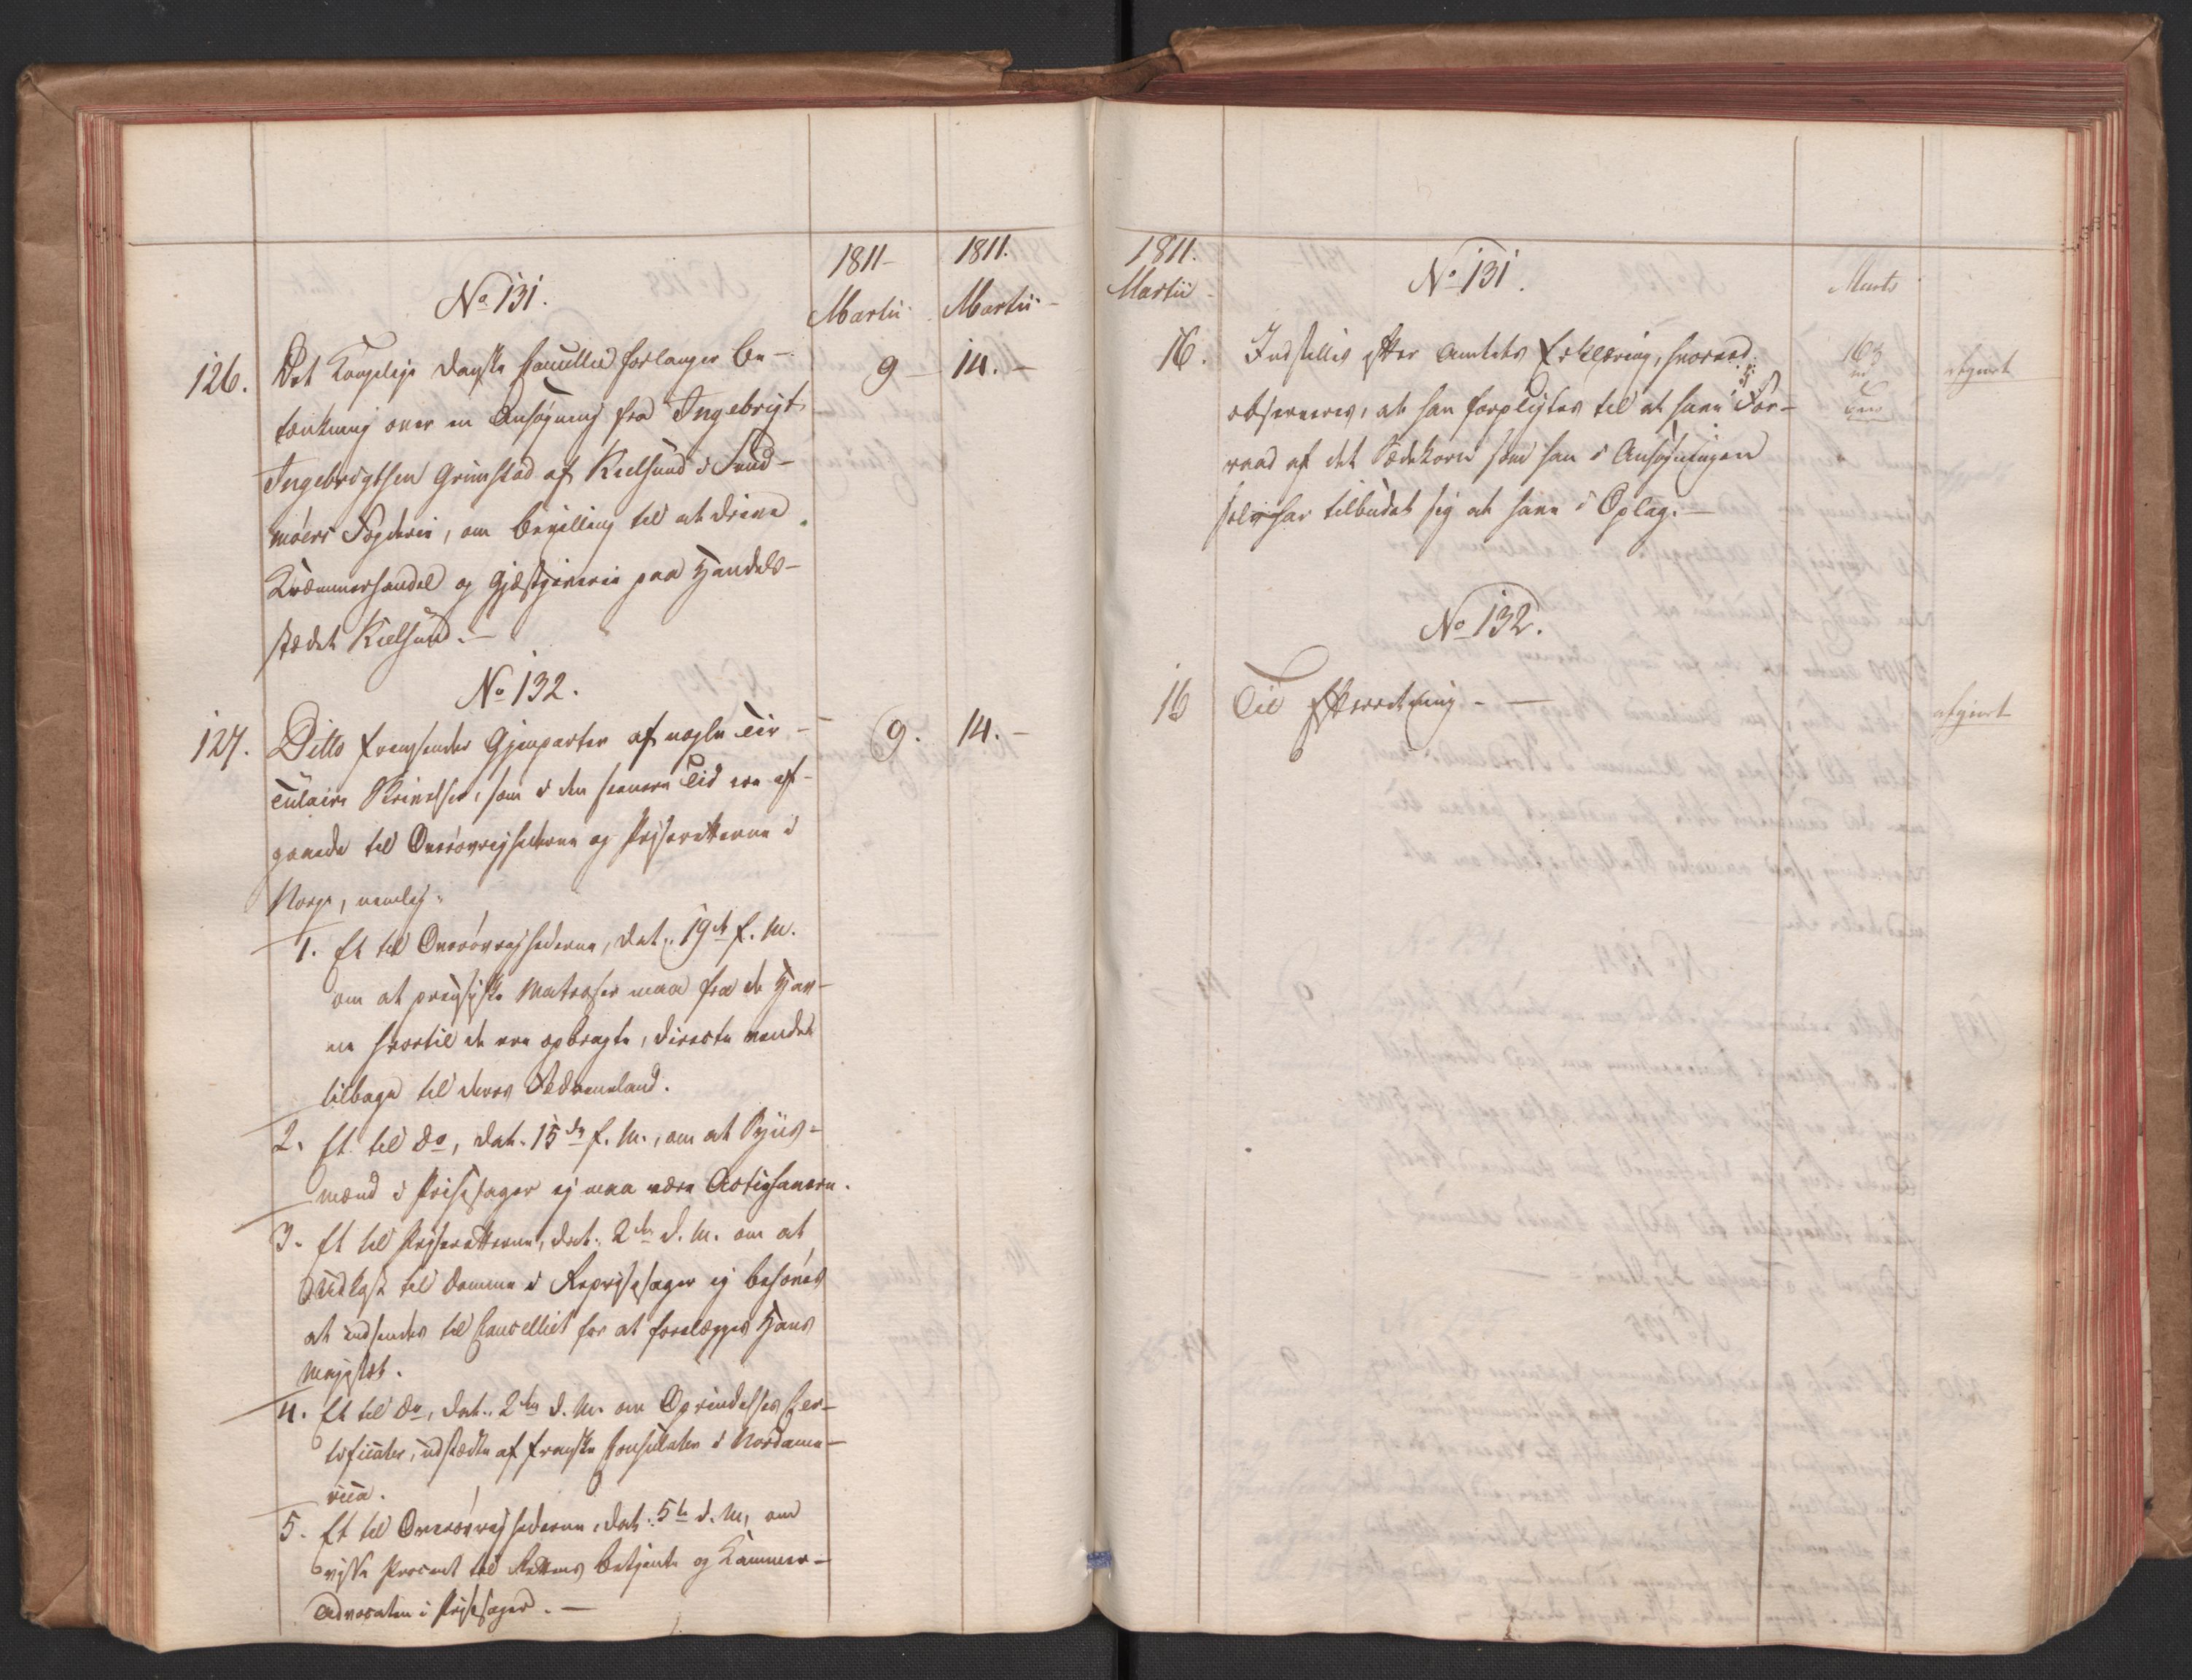 1811 –
1811.
Martii
Martii –
No 131.
126. Det Kongelige danske Cancellie forlanger be–
9 – 14. –
tænkning over en Ansøgning fra Ingebrigt
Ingebrigtsen Grimstad af Kielsund i Sund–
møers Fogderie, om bevilling til at drive
Kræmmerhandel og Gjæstgiverie paa Handels–
stædet Kielsund. –
No 132.
127. Ditto fremsender Gjenparter af nogle Cir–
9. 14. –
culaire Skrivelser, som i den senere Tid ere af–
gaaede til Overøvrighederne og Priseretterne i
Norge, nemlig:
1. Et til Overøvrighederne, dat. 19de f. M.
om at preussiske Matroser maa fra de Hav–
ne hvortil de ere opbragte, directe vende
tilbage til deres Fædreneland.
2. Et til do, dat. 15de f. M., om at Syns–
mænd i Prisesager ej maa være Actiehavere.
3. Et til Priseretterne, dat. 2den d. M. om at
Udkast til domme i Reprisesager ej behøves
at indsendes til Cancelliet for at forelægges Hans
Majestæt.
4. Et til do, dat. 2den d. M. om Oprindelses Cer–
tificater, udstædte af franske Consulater i Nordame–
rica.
5. Et til Overøvrighederne, dat. 5te d. M. om
visse Procent til Rettens betjente og Kammer–
advocaten i Prisesager. –
1811.
Martii –
No 131.
Marts
16. Indstilles efter Amtets Erklæring, hvorved
163
afgiort
observeres, at han forpligtes til at have i For–
raad af det Sædekorn som han i Ansøgningen
selv har tilbudet sig at have i Oplag. –
No 132.
16 Til Efterretning. –
afgiort